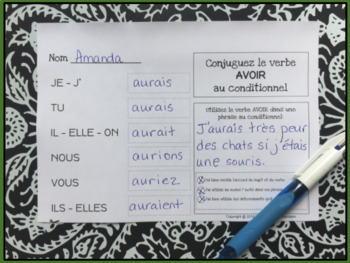 Nom Amanda
JE - J' aurais
TU aurais
IL - ELLE - ON aurait
NOUS aurions
VOUS auriez
ILS - ELLES auraient
Conjuguez le verbe
AVOIR
au conditionnel
Utilisez le verbe AVOIR dans une
phrase au conditionnel.
J'aurais très peur
des chats si j'étais
une souris.